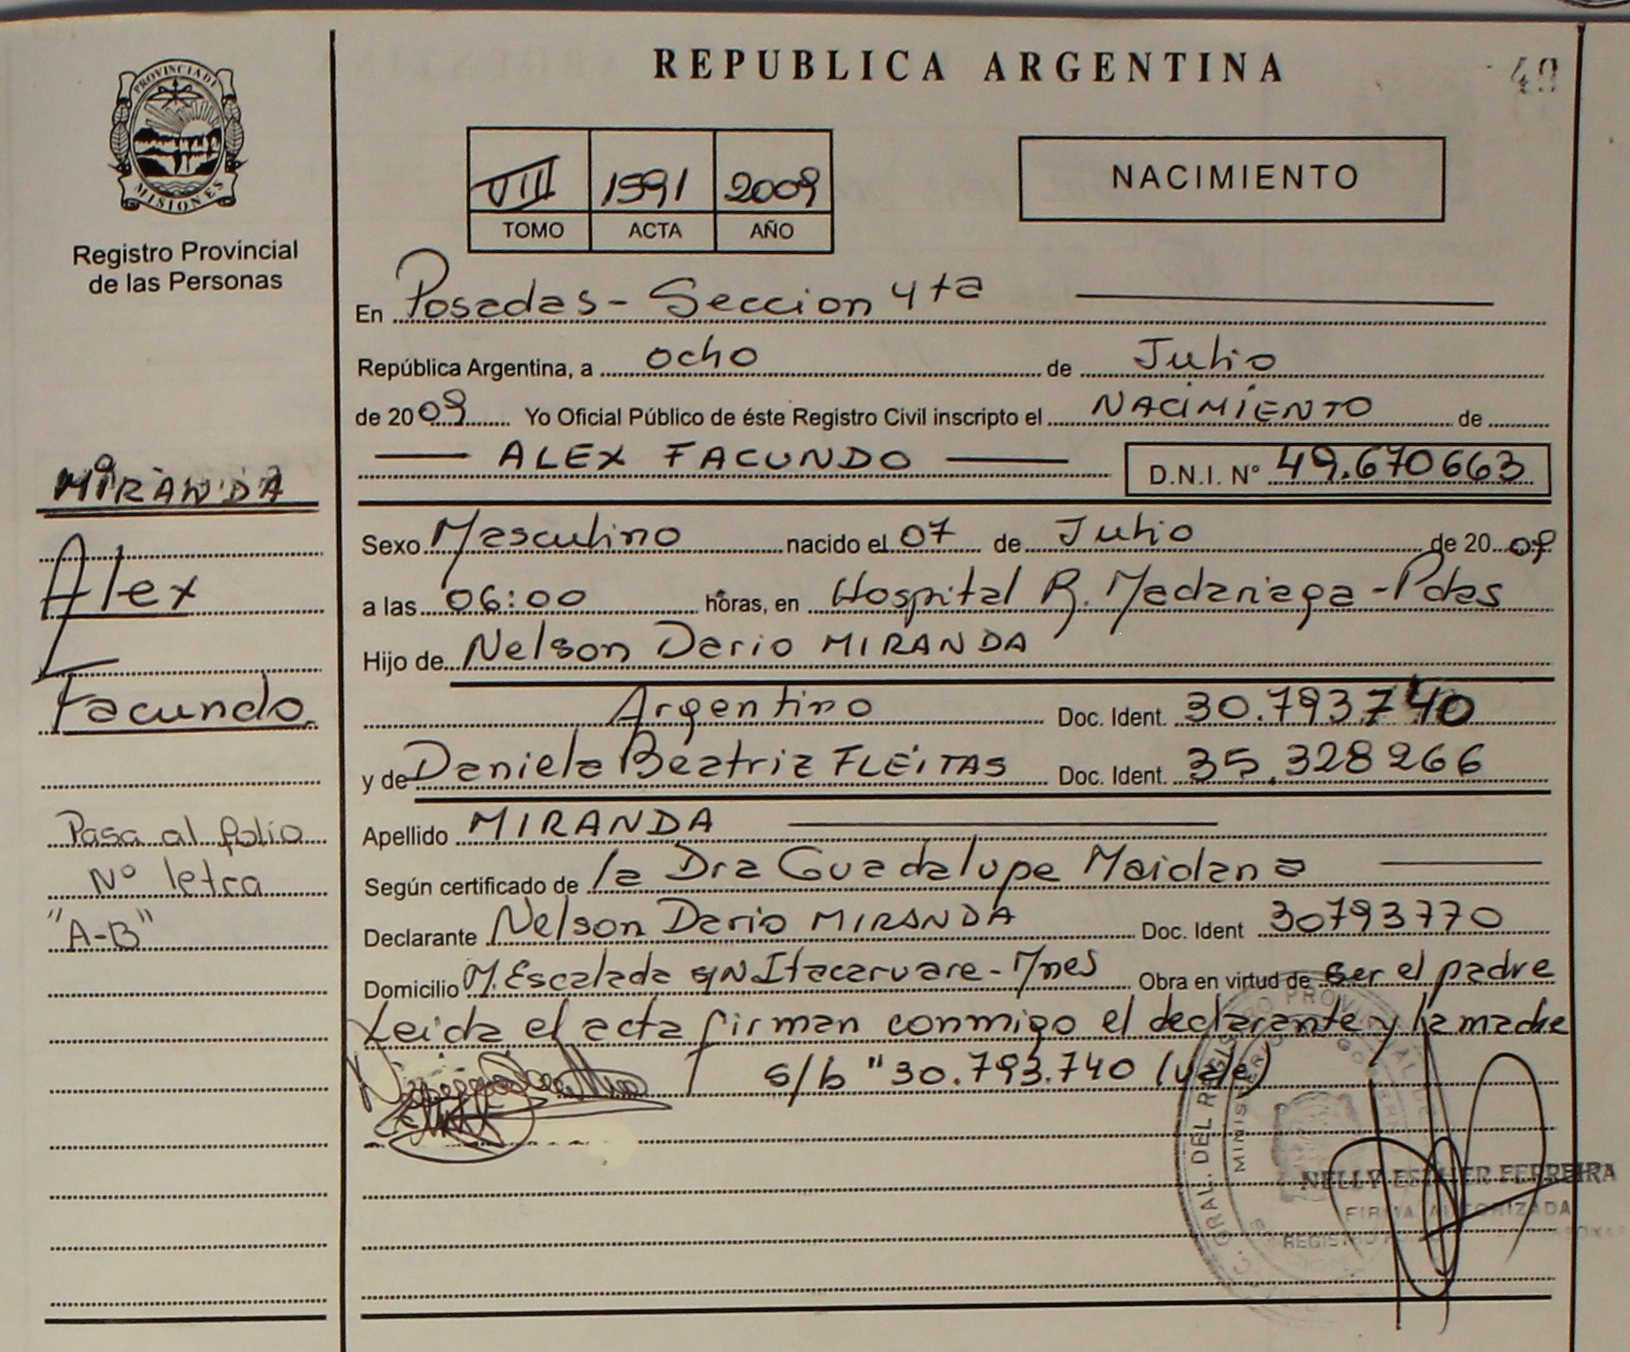 REPUBLICA ARGENTINA
49
PROVINCIA DE
MISIONES
Registro Provincial
de las Personas
VIII 1591 2009
TOMO ACTA AÑO
NACIMIENTO
En Posadas - Seccion 4ta
República Argentina, a ocho de Julio
de 2009 Yo Oficial Público de éste Registro Civil inscripto el NACIMIENTO de
ALEX FACUNDO D.N.I. Nº 49.670663
MIRANDA
Alex
Facundo
Pasa al folio
Nº letra
"A-B"
Sexo Masculino nacido el 07 de Julio de 2009
a las 06:00 horas, en Hospital R. Madariaga - Pdas
Hijo de Nelson Dario MIRANDA
Argentino Doc. Ident. 30.793740
y de Daniela Beatriz FLEITAS Doc. Ident. 35.328266
Apellido MIRANDA
Según certificado de la Dra Guadalupe Maidana
Declarante Nelson Dario MIRANDA Doc. Ident 30793770
Domicilio M. Escalada s/N Itacaruare - Mnes Obra en virtud de ser el padre
Leida el acta firman conmigo el declarante y la madre
s/b "30.793.740 (vale)
GRAL. DEL REGISTRO PROVINCIAL
NELLY ESTHER FERREIRA
FIRMA AUTORIZADA